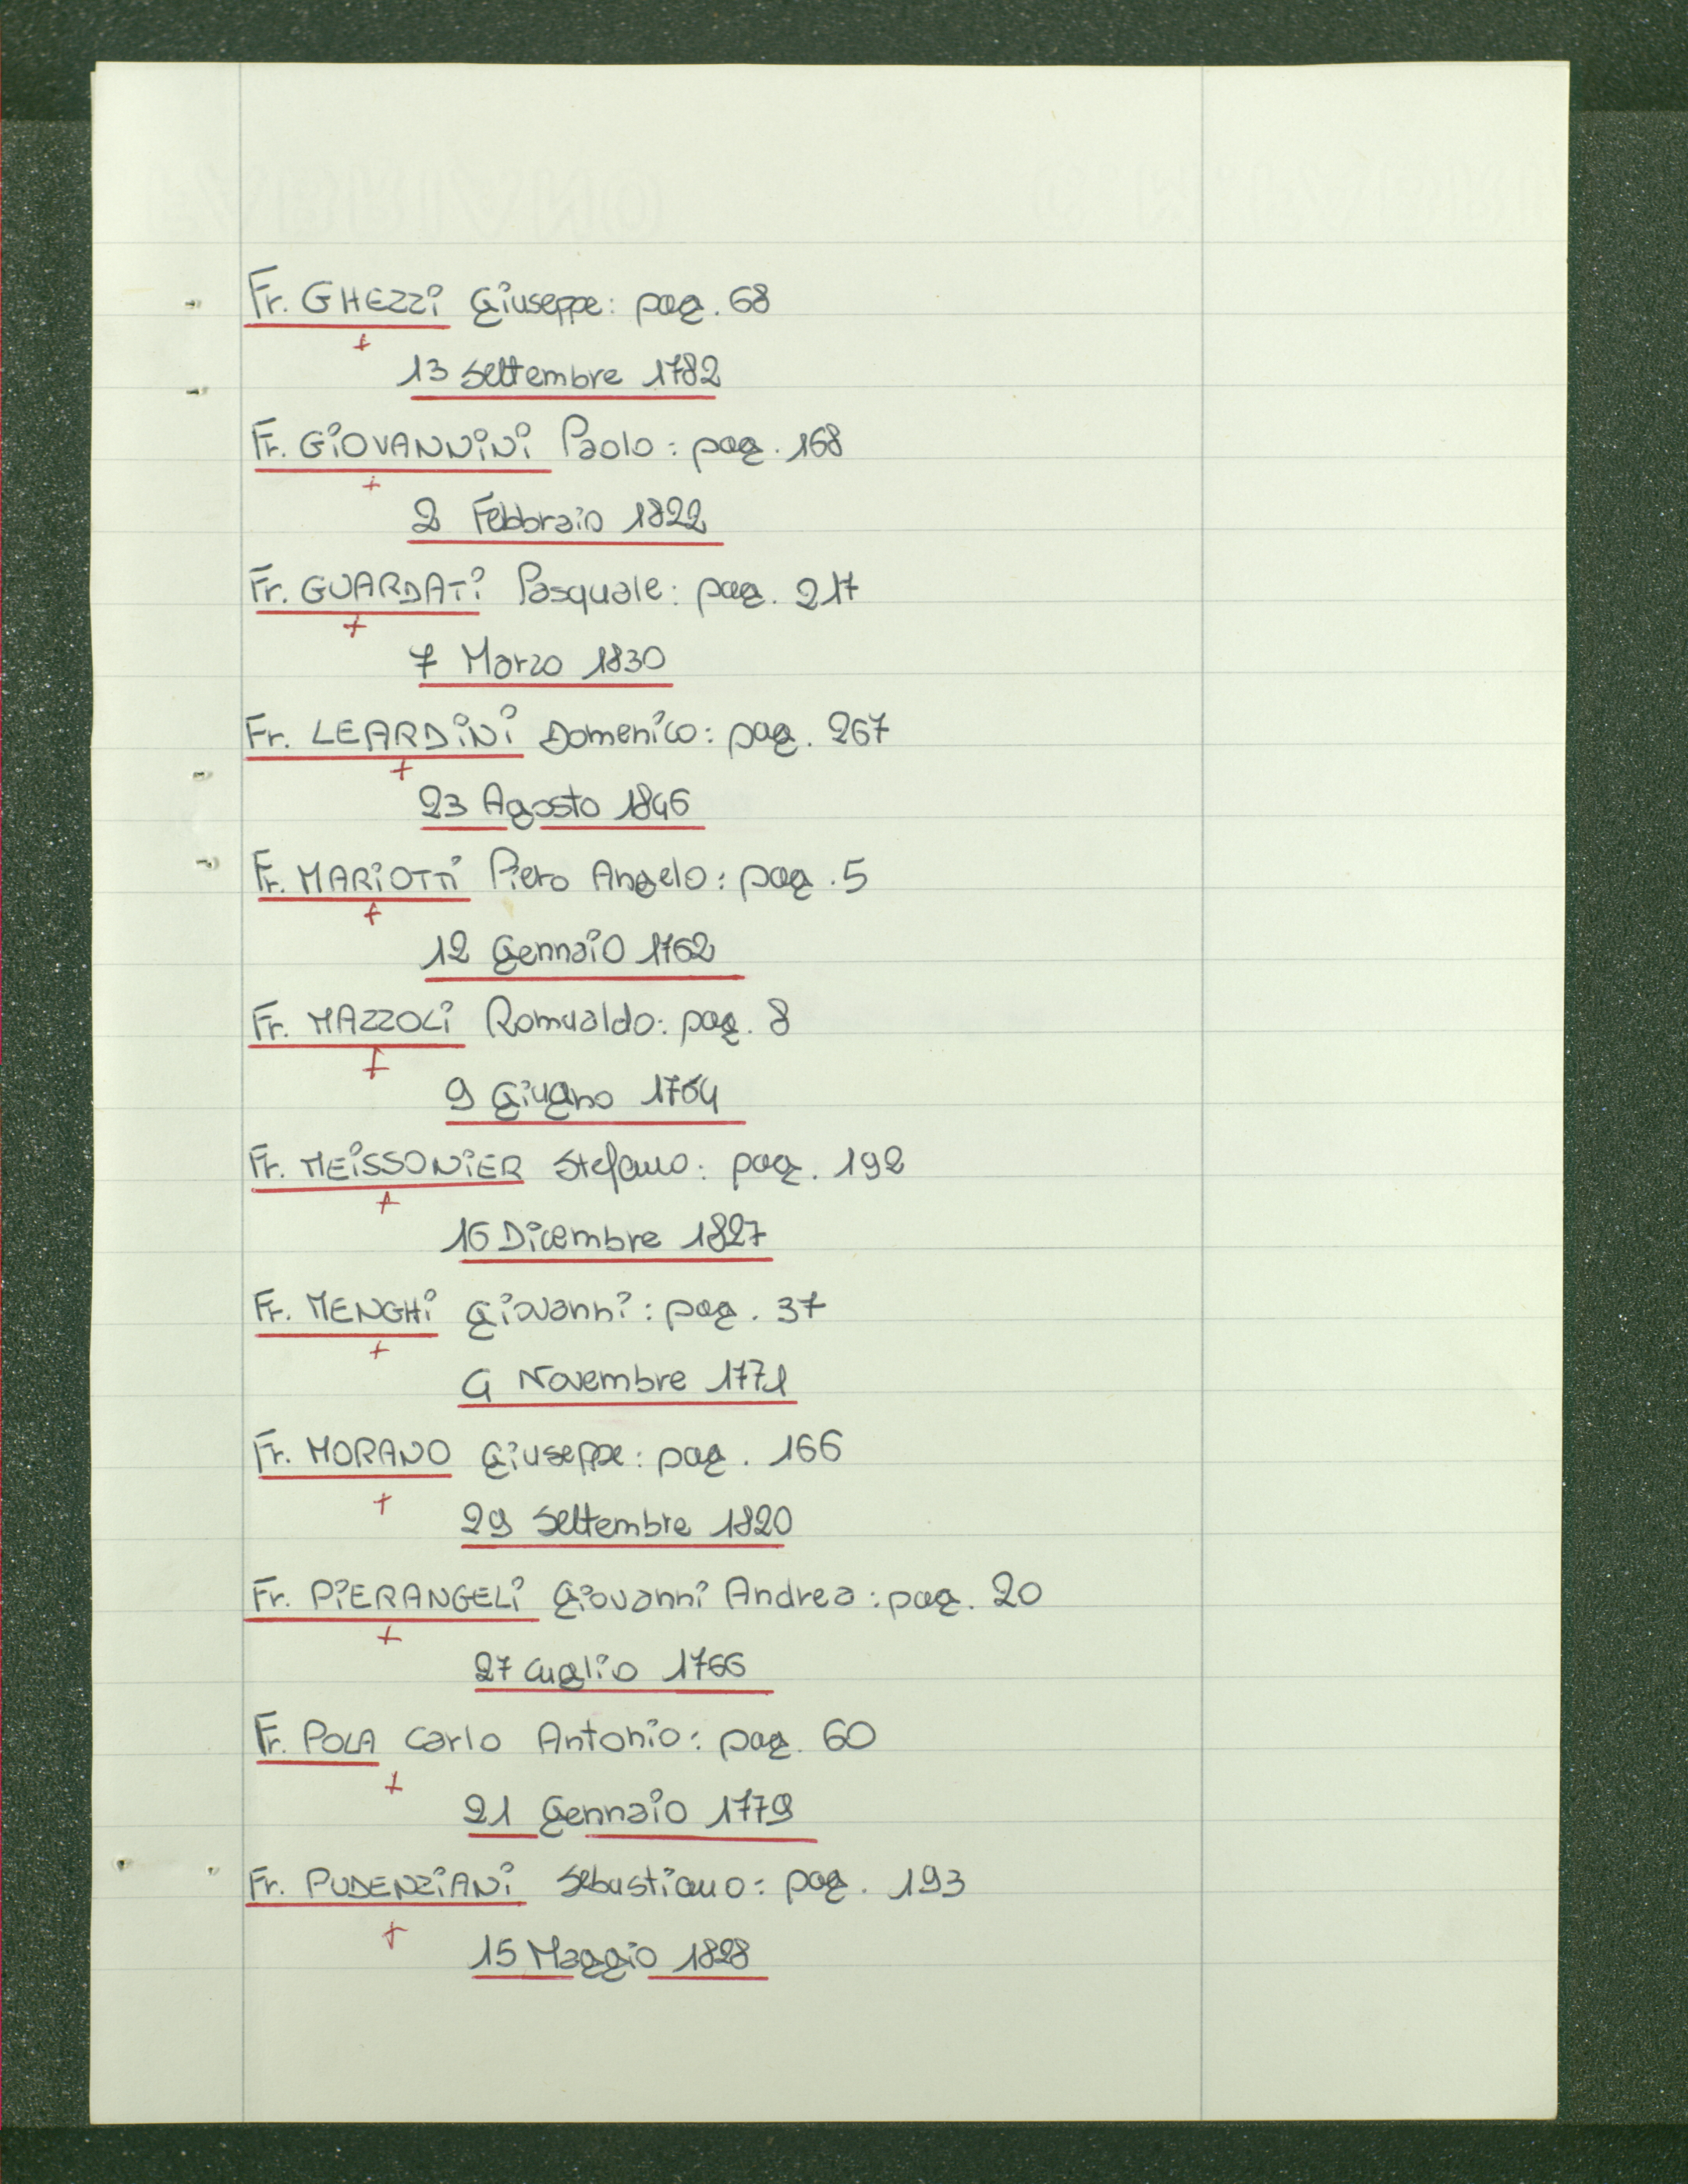 Fr. GHEZZI Giuseppe: pag. 68
+
13 Settembre 1782
Fr. GIOVANNINI Paolo: pag. 168
+
2 Febbraio 1822
Fr. GUARDATI Pasquale: pag. 217
+
7 Marzo 1830
Fr. LEARDINI Domenico: pag. 267
+
23 Agosto 1846
Fr. MARIOTTI Piero Angelo: pag. 5
+
12 Gennaio 1762
Fr. MAZZOLI Romualdo: pag. 8
+
9 Giugno 1764
Fr. MEISSONIER Stefano: pag. 192
+
16 Dicembre 1827
Fr. MENGHI Giovanni: pag. 37
+
Novembre 1771
Fr. MORANO Giuseppe: pag. 166
+
29 Settembre 1820
Fr. PIERANGELI Giovanni Andrea: pag. 20
+
27 Luglio 1766
Fr. POLA Carlo Antonio: pag. 60
+
21 Gennaio 1779
Fr. PUDENZIANI Sebastiano: pag. 193
+
15 Maggio 1828